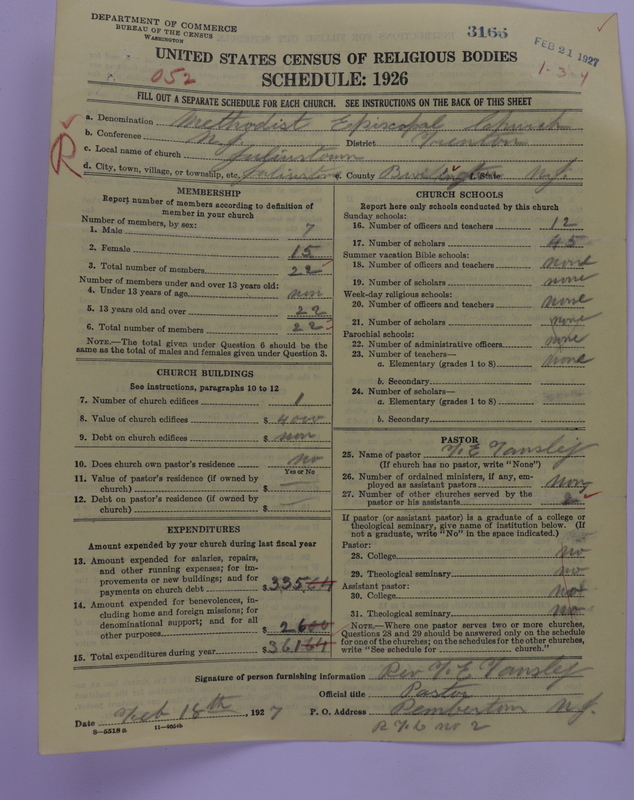 DEPARTMENT OF COMMERCE
BUREAU OF THE CENSUS
WASHINGTON
3165
FEB 21 1927
1-3-4
052
UNITED STATES CENSUS OF RELIGIOUS BODIES
SCHEDULE: 1926
FILL OUT A SEPARATE SCHEDULE FOR EACH CHURCH. SEE INSTRUCTIONS ON THE BACK OF THIS SHEET
R
a. Denomination Methodist Episcopal Church
b. Conference N.J. District Trenton
c. Local name of church Juliustown
d. City, town, village, or township, etc. Juliustown e. County Burlington f. State N.J.
MEMBERSHIP
Report number of members according to definition of member in your church
Number of members, by sex:
1. Male 7
2. Female 15
3. Total number of members 22
Number of members under and over 13 years old:
4. Under 13 years of age non
5. 13 years old and over 22
6. Total number of members 22
NOTE.—The total given under Question 6 should be
same as the total of males and females given under Question 3.
CHURCH BUILDINGS
See instructions, paragraphs 10 to 12
7. Number of church edifices 1
8. Value of church edifices $ 4000
9. Debt on church edifices $ non
10. Does church own pastor's residence no
Yes or No
11. Value of pastor's residence (if owned by
church) $
12. Debt on pastor's residence (if owned by
church) $
EXPENDITURES
Amount expended by your church during last fiscal year
13. Amount expended for salaries, repairs,
and other running expenses; for im-
provements or new buildings; and for
payments on church debt $ 335 64
14. Amount expended for benevolences, in-
cluding home and foreign missions; for
denominational support; and for all
other purposes $ 26 00
15. Total expenditures during year $ 361 64
CHURCH SCHOOLS
Report here only schools conducted by this church
Sunday schools:
16. Number of officers and teachers 12
17. Number of scholars 45
Summer vacation Bible schools:
18. Number of officers and teachers none
19. Number of scholars none
Week-day religious schools:
20. Number of officers and teachers none
21. Number of scholars none
Parochial schools:
22. Number of administrative officers none
23. Number of teachers—
a. Elementary (grades 1 to 8) none
b. Secondary
24. Number of scholars—
a. Elementary (grades 1 to 8)
b. Secondary
PASTOR
25. Name of pastor
(If church has no pastor, write "None")
26. Number of ordained ministers, if any, em-
ployed as assistant pastors non
27. Number of other churches served by the
pastor or his assistants
If pastor (or assistant pastor) is a graduate of a college or
theological seminary, give name of institution below. (If
not a graduate, write "No" in the space indicated.)
Pastor:
28. College no
29. Theological seminary no
Assistant pastor:
30. College
31. Theological seminary no
NOTE.—Where one pastor serves two or more churches,
Questions 28 and 29 should be answered only on the schedule
for one of the churches; on the schedules for the other churches,
write "See schedule for church."
Signature of person furnishing information Rev
Official title Pastor
Date Feb 18th, 1927 P. O. Address Pemberton N.J.
8-5518a 11-9651b
R.F.D. no 2